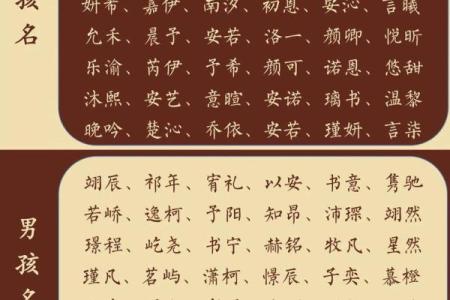 孩名
妍希、嘉伊、南汐、初恩、安沁、言曦
允禾、晨予、安若、洛一、颜卿、悦昕
乐渝、芮伊、予希、颜可、诺恩、悠甜
沐熙、安艺、意暄、安诺、璃书、温黎
晚吟、楚沁、乔依、安若、瑾妍、言柒
男孩名
翊辰、祁年、宥礼、以安、书意、隽驰
若峤、逸柯、予阳、知昂、沛琛、翊然
璟程、屹尧、书宁、赫铭、牧凡、星然
瑾凡、茗屿、潇柯、憬辰、子奕、慕橙